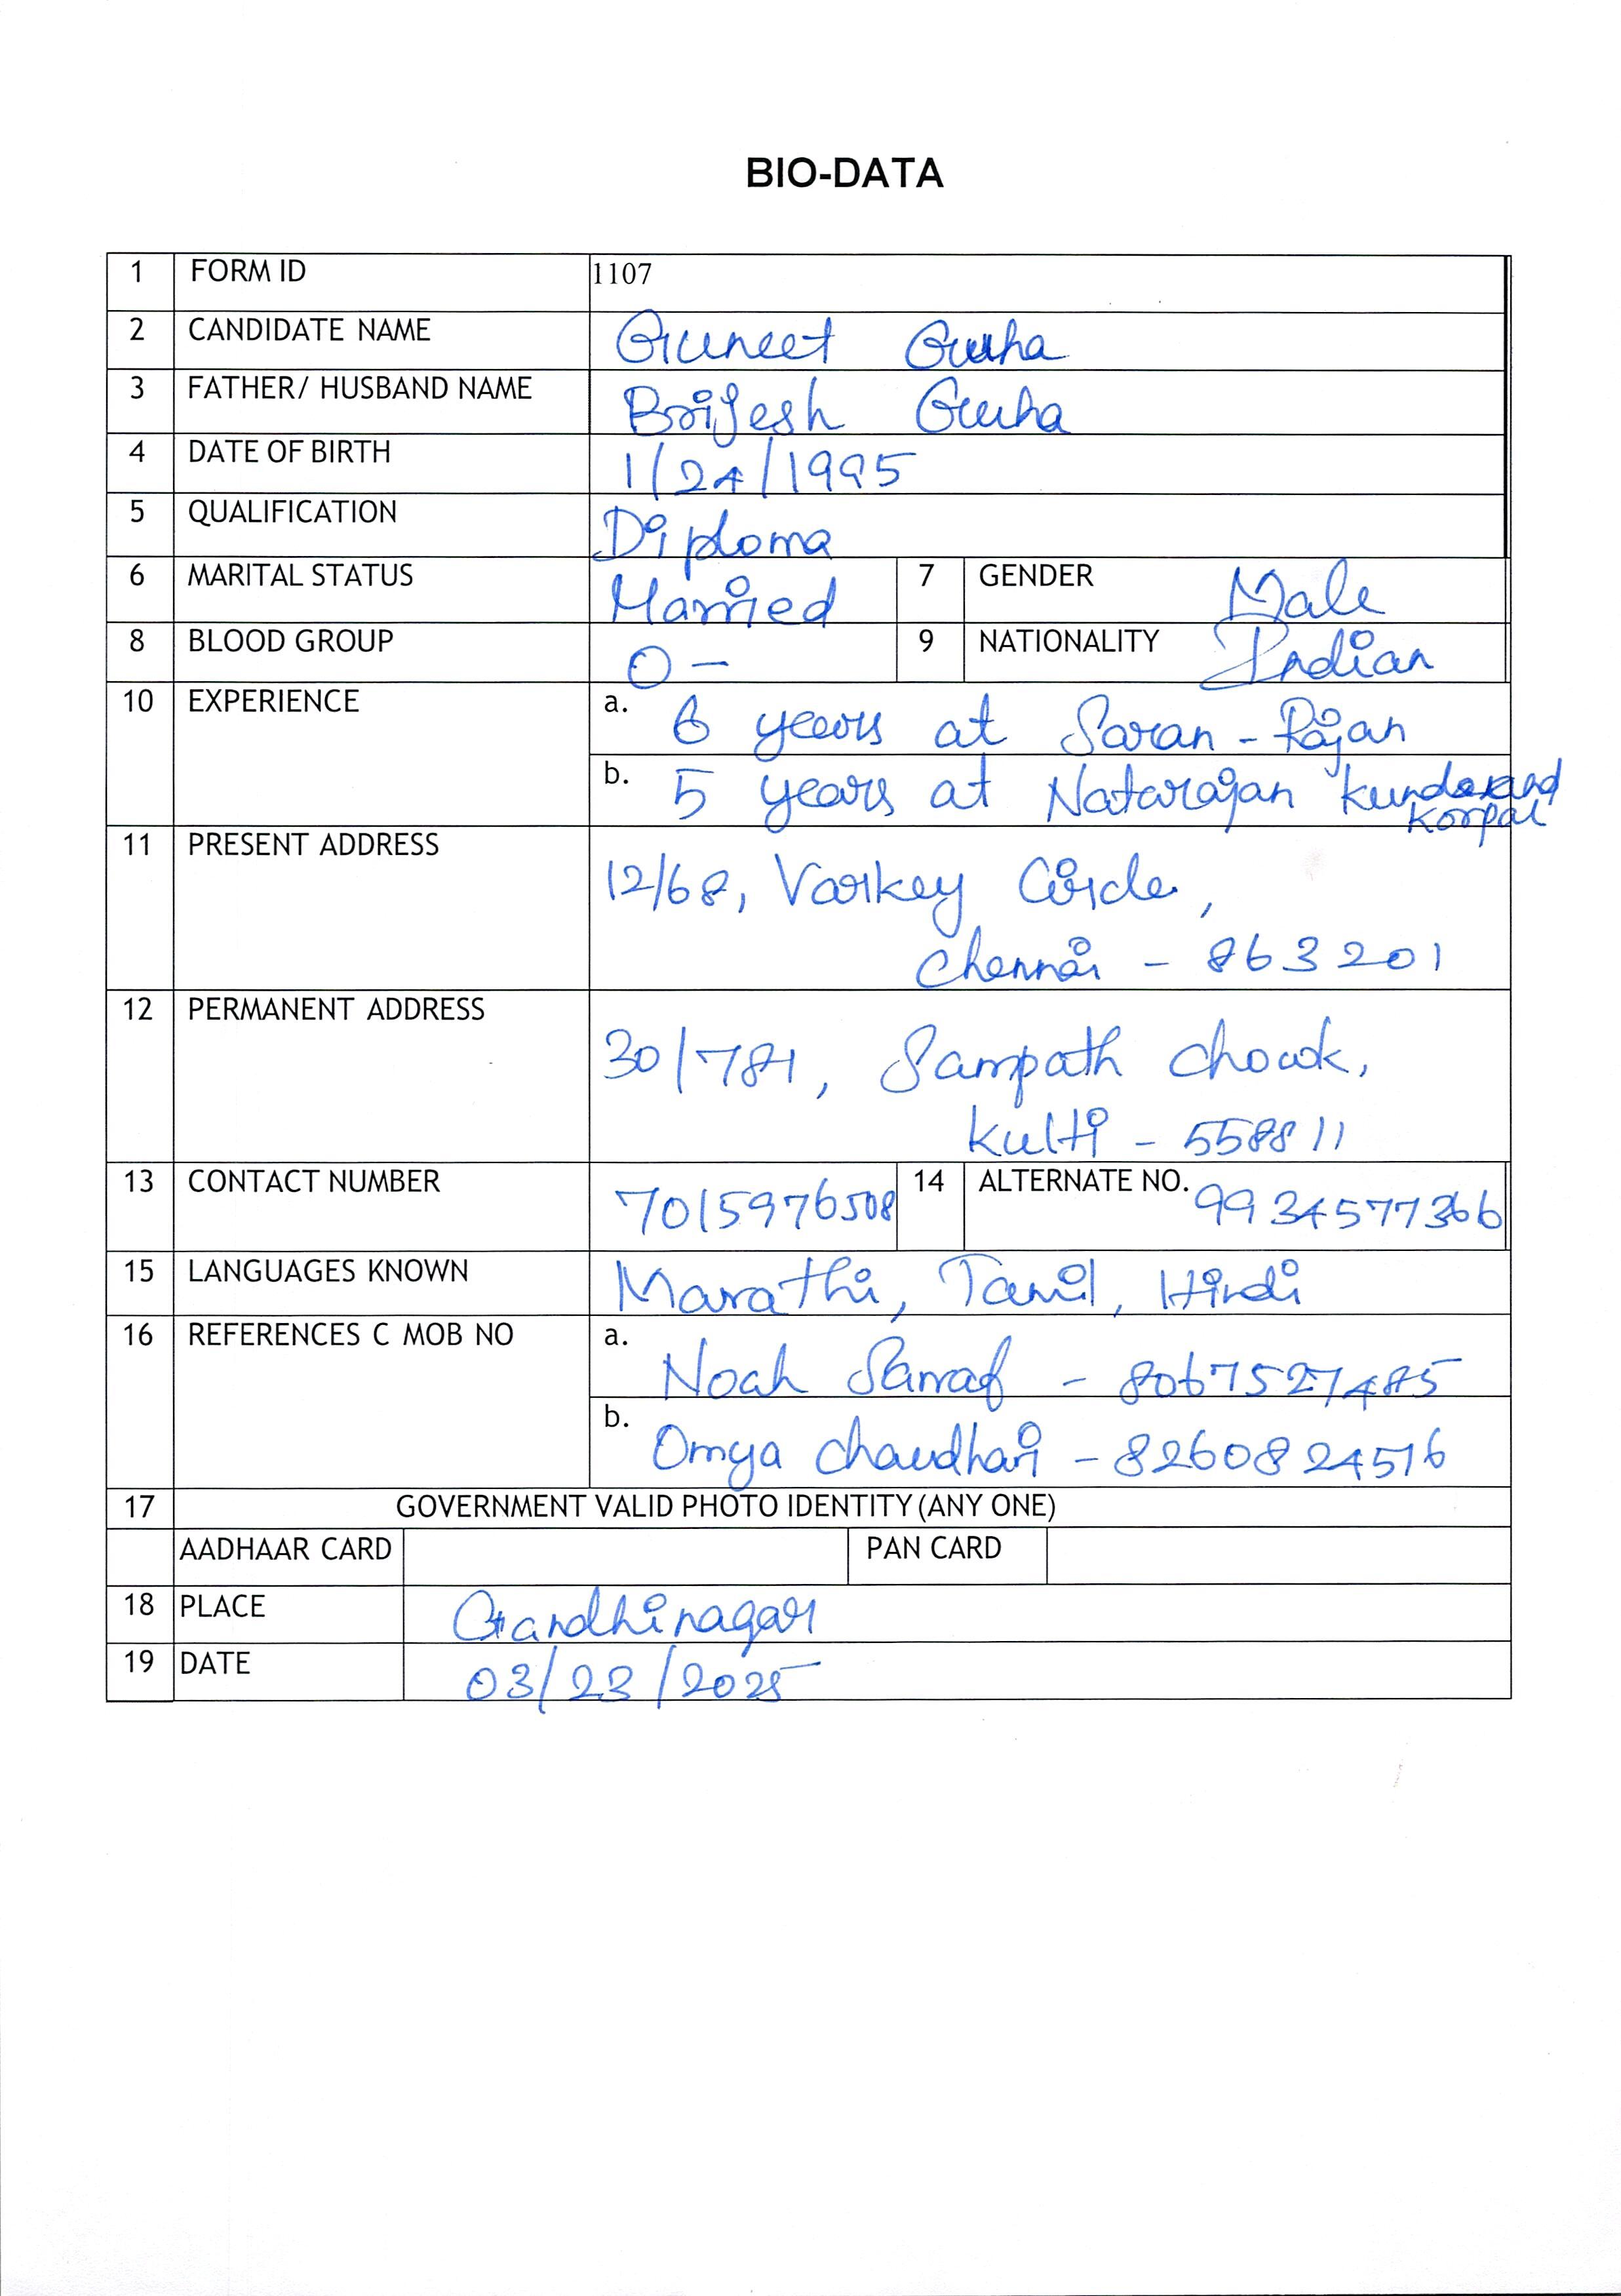 BIO-DATA
1 FORM ID 1107
2 CANDIDATE NAME Guneet Guha
3 FATHER/ HUSBAND NAME Brijesh Guha
4 DATE OF BIRTH 1/24/1995
5 QUALIFICATION Diploma
6 MARITAL STATUS Married 7 GENDER Male
8 BLOOD GROUP O - 9 NATIONALITY Indian
10 EXPERIENCE a. 6 years at Saran - Rajan
b. 5 years at Natarajan Kunda and
Korpal
11 PRESENT ADDRESS 12/68, Varkey Circle,
Chennai - 863201
12 PERMANENT ADDRESS 30/784, Sampath Chowk,
Kulti - 558811
13 CONTACT NUMBER 7015976508 14 ALTERNATE NO. 9934577366
15 LANGUAGES KNOWN Marathi, Tamil, Hindi
16 REFERENCES C MOB NO a. Noah Sarraf - 8067527485
b. Omya Chaudhari - 8260824516
17 GOVERNMENT VALID PHOTO IDENTITY (ANY ONE)
AADHAAR CARD PAN CARD
18 PLACE Gandhinagar
19 DATE 03/23/2025